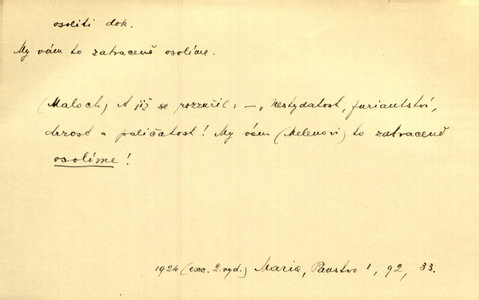 osoliti dok.
My vám to zatraceně osolíme.
(Maloch) A již se rozzuřil: — „Nestydatost, furiantství,
drzost a paličatost! My vám (Melenovi) to zatraceně
osolíme!
1924 (exc. 2. vyd.) Maria, Panstvo¹, 92, 33.